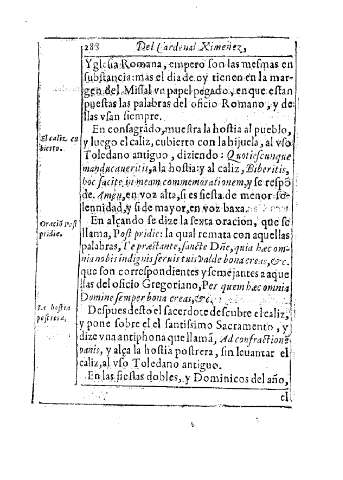 288 Del Cardenal Ximenez,
Yglesia Romana, empero son las mesmas en
substancia: mas el dia de oy tienen en la mar-
gen del Missal vn papel pegado, en que estan
puestas las palabras del oficio Romano, y de
llas vsan siempre.
En consagrãdo, muestra la hostia al pueblo,
y luego el caliz, cubierto con la hijuela, al vso
Toledano antiguo, diziendo: Quotiescunque
manducaueritis, a la hostia: y al caliz, Biberitis,
hoc facite in meam commemorationem, y se respõ
de. Amen, en voz alta, si es fiesta de menor so-
lennidad, y si de mayor, en voz baxa.
En alçando se dize la sexta oracion, que se
llama, Post pridie: la qual remata con aquellas
palabras, Te præstante, sancte Dñe, quia hæc om-
nia nobis indignis seruis tuis valde bona creas, &c.
que son correspondientes y semejantes a aque
llas del oficio Gregoriano, Per quem hæc omnia
Domine semper bona creas, &c.
Despues desto el sacerdote descubre el caliz,
y pone sobre el el santissimo Sacramento, y
dize vna antiphona que llamã, Ad confractionẽ
panis, y alça la hostia postrera, sin leuantar el
caliz, al vso Toledano antiguo.
En las fiestas dobles, y Dominicos del año,
el
El caliz cu
bierto.
Oraciõ Post
pridie.
La hostia
postrera.